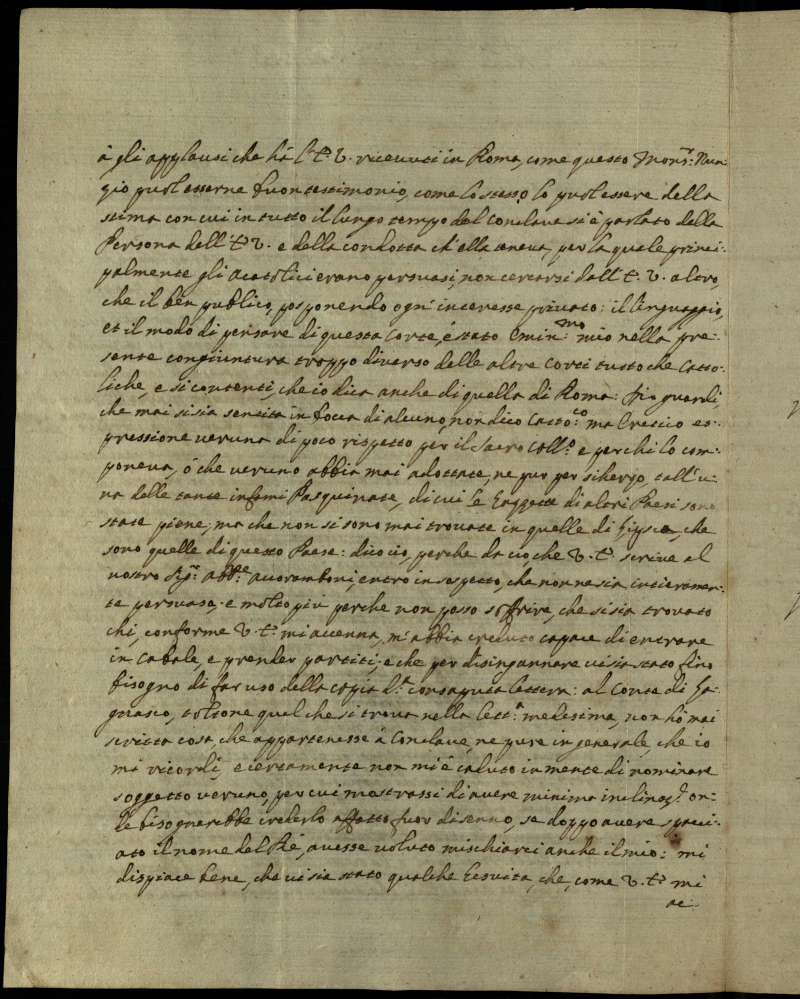 à gli applausi che hà l'E. V. ricevuti in Roma, come questo Mons.r Nun-
zio può esserne buon testimonio, come lo stesso lo può essere della
stima con cui in tutto il lungo tempo del Conclave si è parlato della
Persona dell'E. V. e della condotta ch'ella teneva, per la quale princi-
palmente gli Acatolici erano persuasi, non cercarsi dall'E. V. altro,
che il ben publico, posponendo ogni interesse privato: il linguaggio,
et il modo di pensare di questa Corte, è stato Emin.mo mio nella pre-
sente congiuntura troppo diverso delle altre Corti tutto che Catto-
liche, e si contenti, che io dica anche di quella di Roma: Dio guardi,
che mai si sia sentita in bocca di alcuno, non dico Catto.co ma Eretico es-
pressione veruna di poco rispetto per il Sacro Coll.o e per chi lo com-
poneva, ò che veruno abbia mai adottate, ne pur per scherzo, tall'u-
na delle tante infami Pasquinate, di cui le Gazzette di altri Paesi sono
state piene, ma che non si sono mai trovate in quelle di, che
sono quelle di questo Paese: dico ciò, perche da ciò, che V. E. scrive al
nostro Sig.r Abb.e Avoramboni, entro in sospetto, che non ne sia intieramen-
te persuasa e molto più perche non posso soffrire, che si sia trovato
chi, conforme V. E. mi accenna, m'abbia creduto capace di entrare
in Cabale, e prender partiti, e che per disingannare vi sia stato fino
bisogno di far uso della copia d.a consaputa lettera: al Conte di
, toltone quel che si trova nella lett.a medesima, non hò mai
scritta cosa, che appartenesse à Conclave, ne pure in generale, che io
mi ricordi, e certamente non mi è caduto in mente di nominare
soggetto veruno, per cui mostrassi di avere minima inclinaz.e on-
de bisognarebbe crederlo affatto fuor di senno, se doppo avere spacci-
ato il nome del Rè, avesse voluto mischiarci anche il mio: mi
dispiace bene, che vi sia stato qualche Gesuita, che, come V. E. mi
ac-